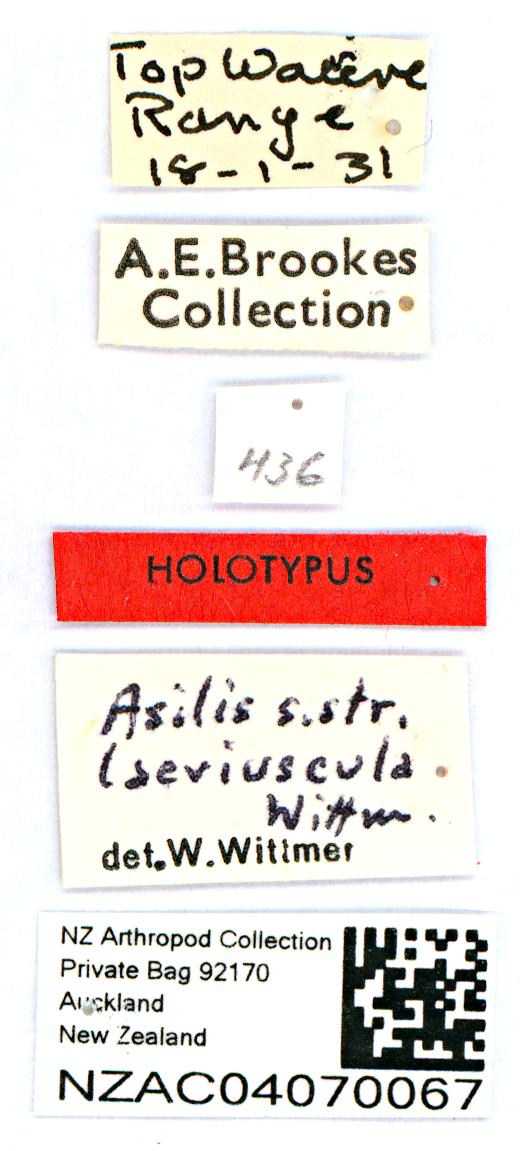 Top Wairere
Range
18-1-31
A.E.Brookes
Collection
436
HOLOTYPUS
Asilis s.str.
laeviuscula
Wittm.
det.W.Wittmer
NZ Arthropod Collection
Private Bag 92170
Auckland
New Zealand
NZAC04070067